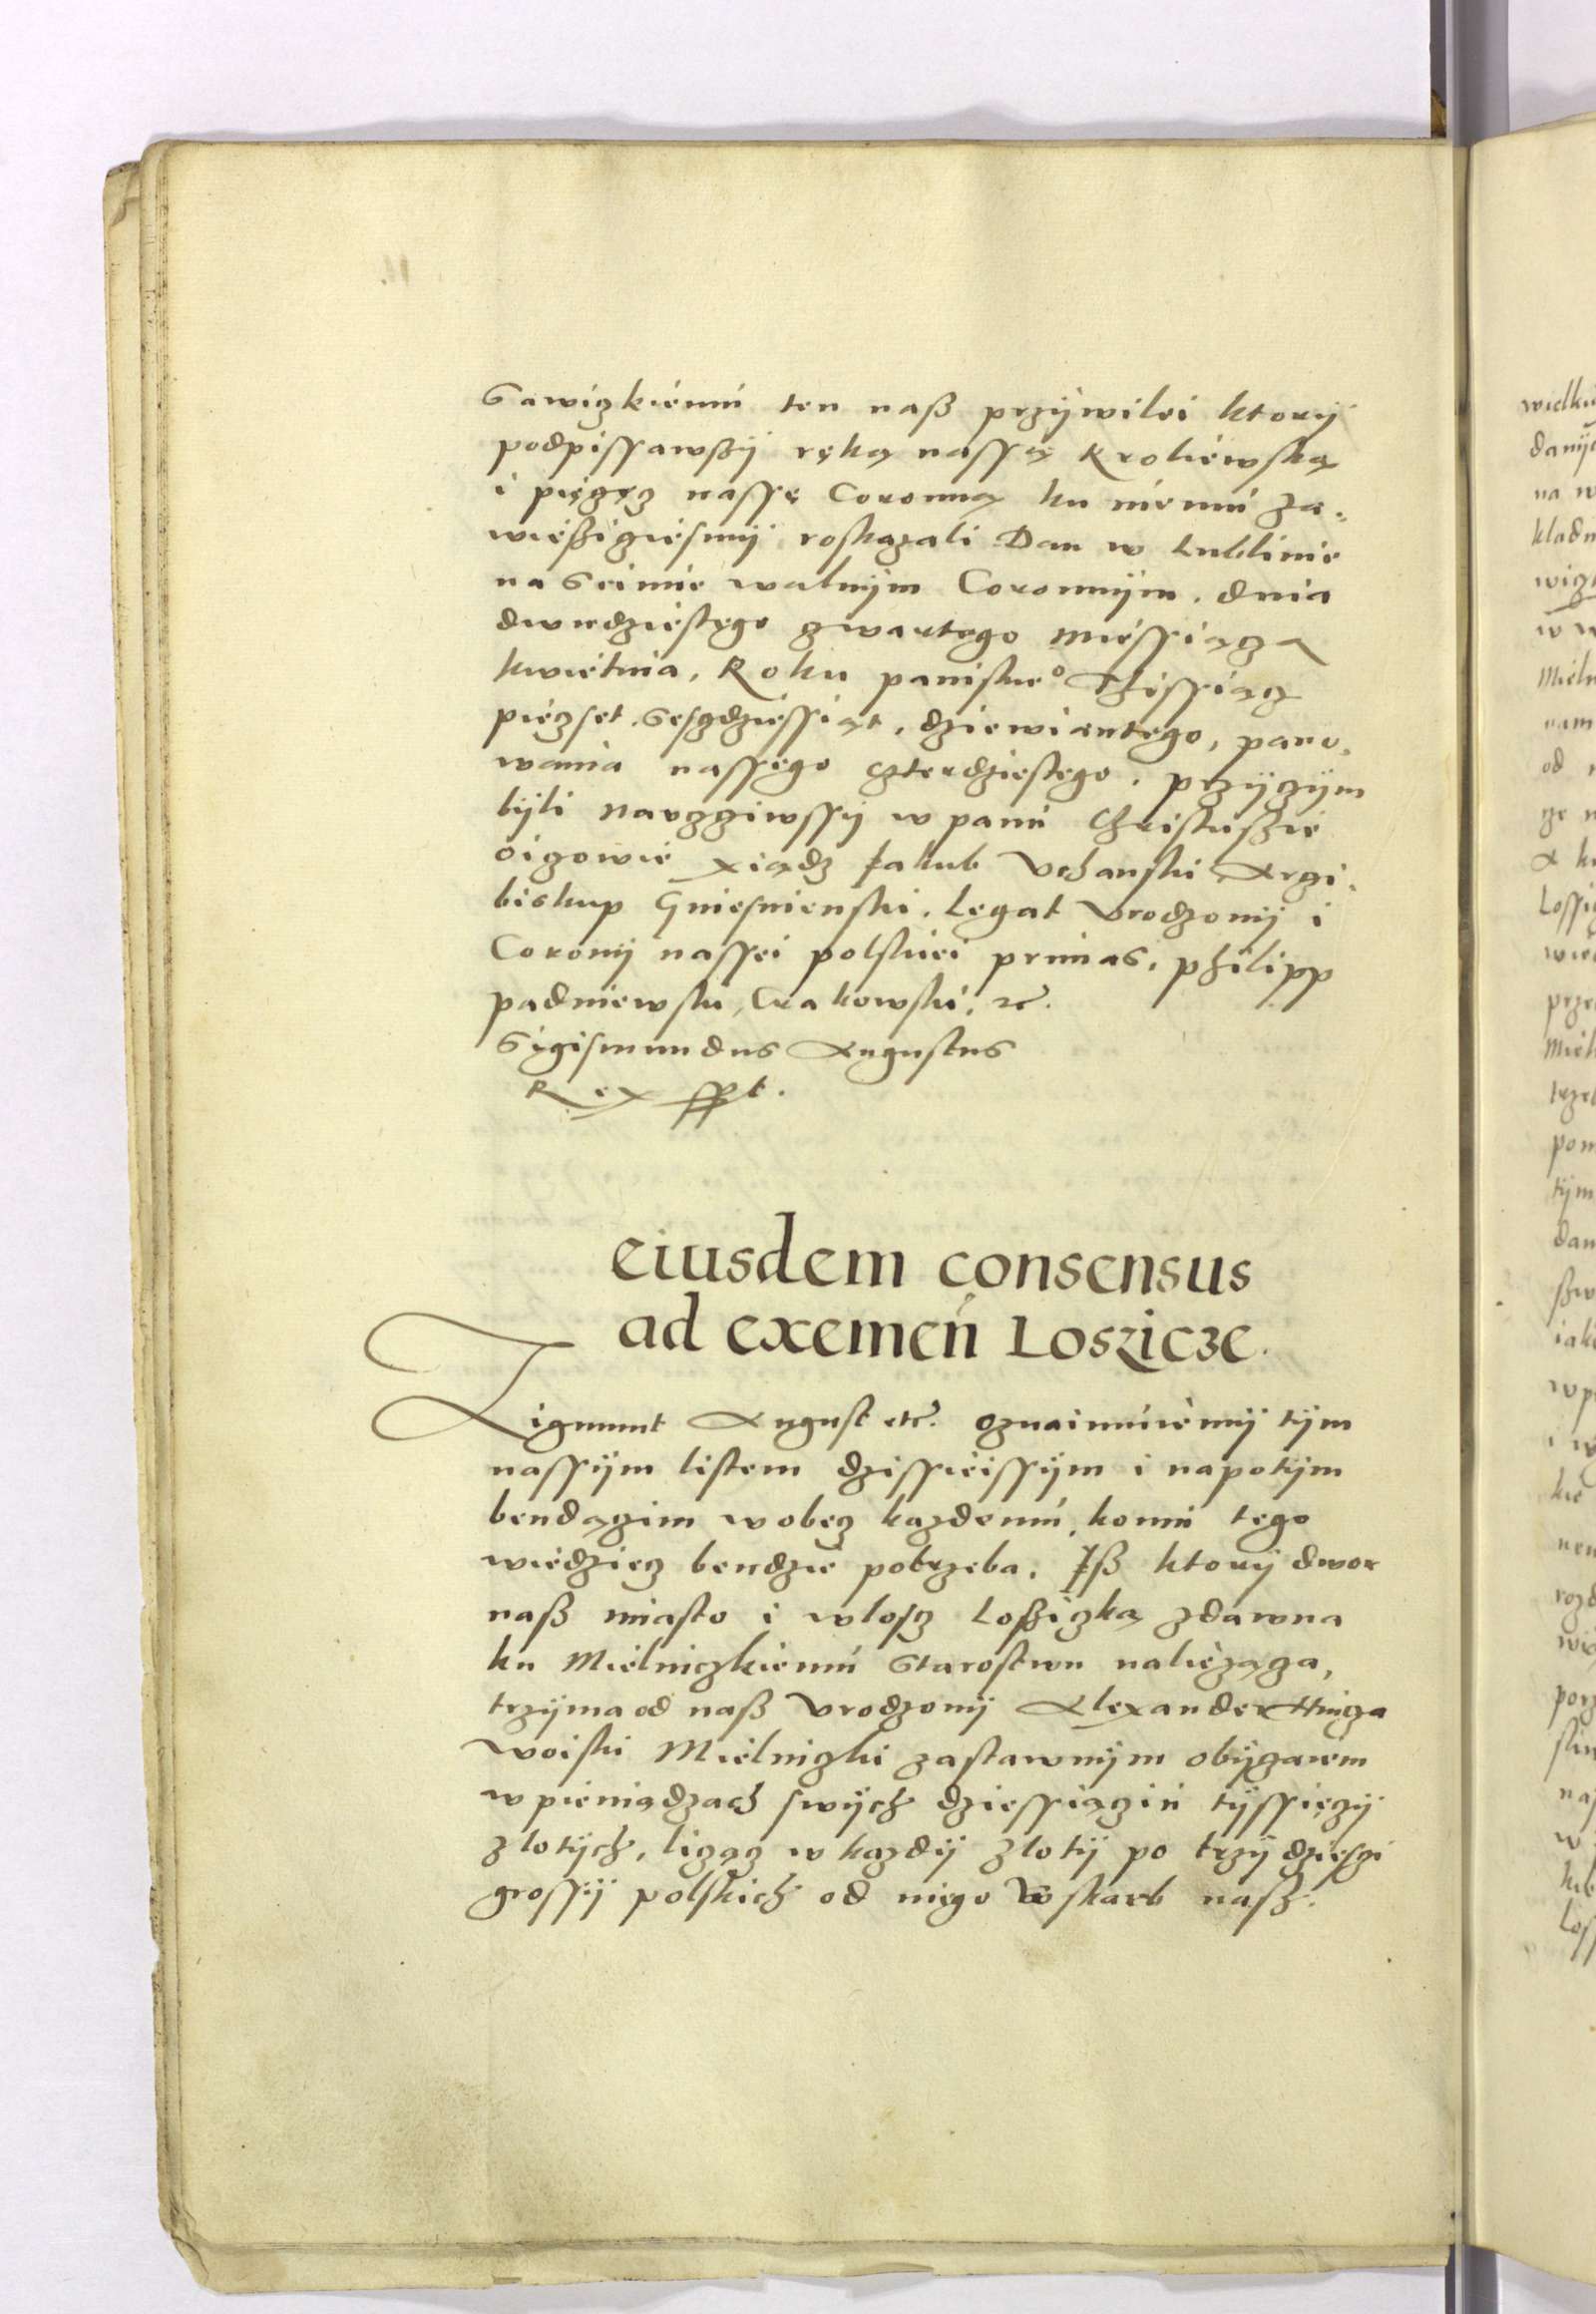 Sawiczkiemú ten naß przÿwilei ktorÿ
podpissawßÿ ręką nassą Kroliéwską
i pięczęcz nassę Coronną ku niemú za-
wiéßiczieśmÿ roskazali Dan w Lublinie
na Seimie walnÿm Coronnÿm. dnia
dwudziéstęgo czwartego miéssiącza
kwiétnia, Roku panisкieº Thissiącz
pięczset. Seszdziéssiąt, dziewiantego, pano-
wania nassęgo czterdziestego. przÿczÿm
bÿli Narczcziwssÿ w panú Christusżie
oiczowie Xiądz Jakub Vchanski Arczi-
biskup Gniesnienski. Legat Vrodzonÿ i
Coronÿ nassei polskiei primas, philipp
padniewski, Crakowski, etc.
Sigismundus Augustus
Rex sspt.
eiusdem consensus
ad exemeń Loszicze.
Zigmunt August etc. Oznaimúiémÿ tÿm
nassÿm listem dzissiéissÿm i napotÿm
bendączim wobęcz kazdemú, komú tego
wiédziecz bendzie potrzeba. Iß ktorÿ dwor
naß miasto i wloscz Loßiczką zdawna
ku Miélniczkiemú Starostwu naliéżącza,
trzÿma od naß Vrodzonÿ Alexander Hincza
woiski Miélniczki zastawnÿm obÿczaiém
w pieniądzach swÿch dziessiącziú tÿssięczÿ
zlotÿch, licząc w kazdÿ zlotÿ po trzÿdziesczi
grossÿ polskich od niego W skarb nasz.